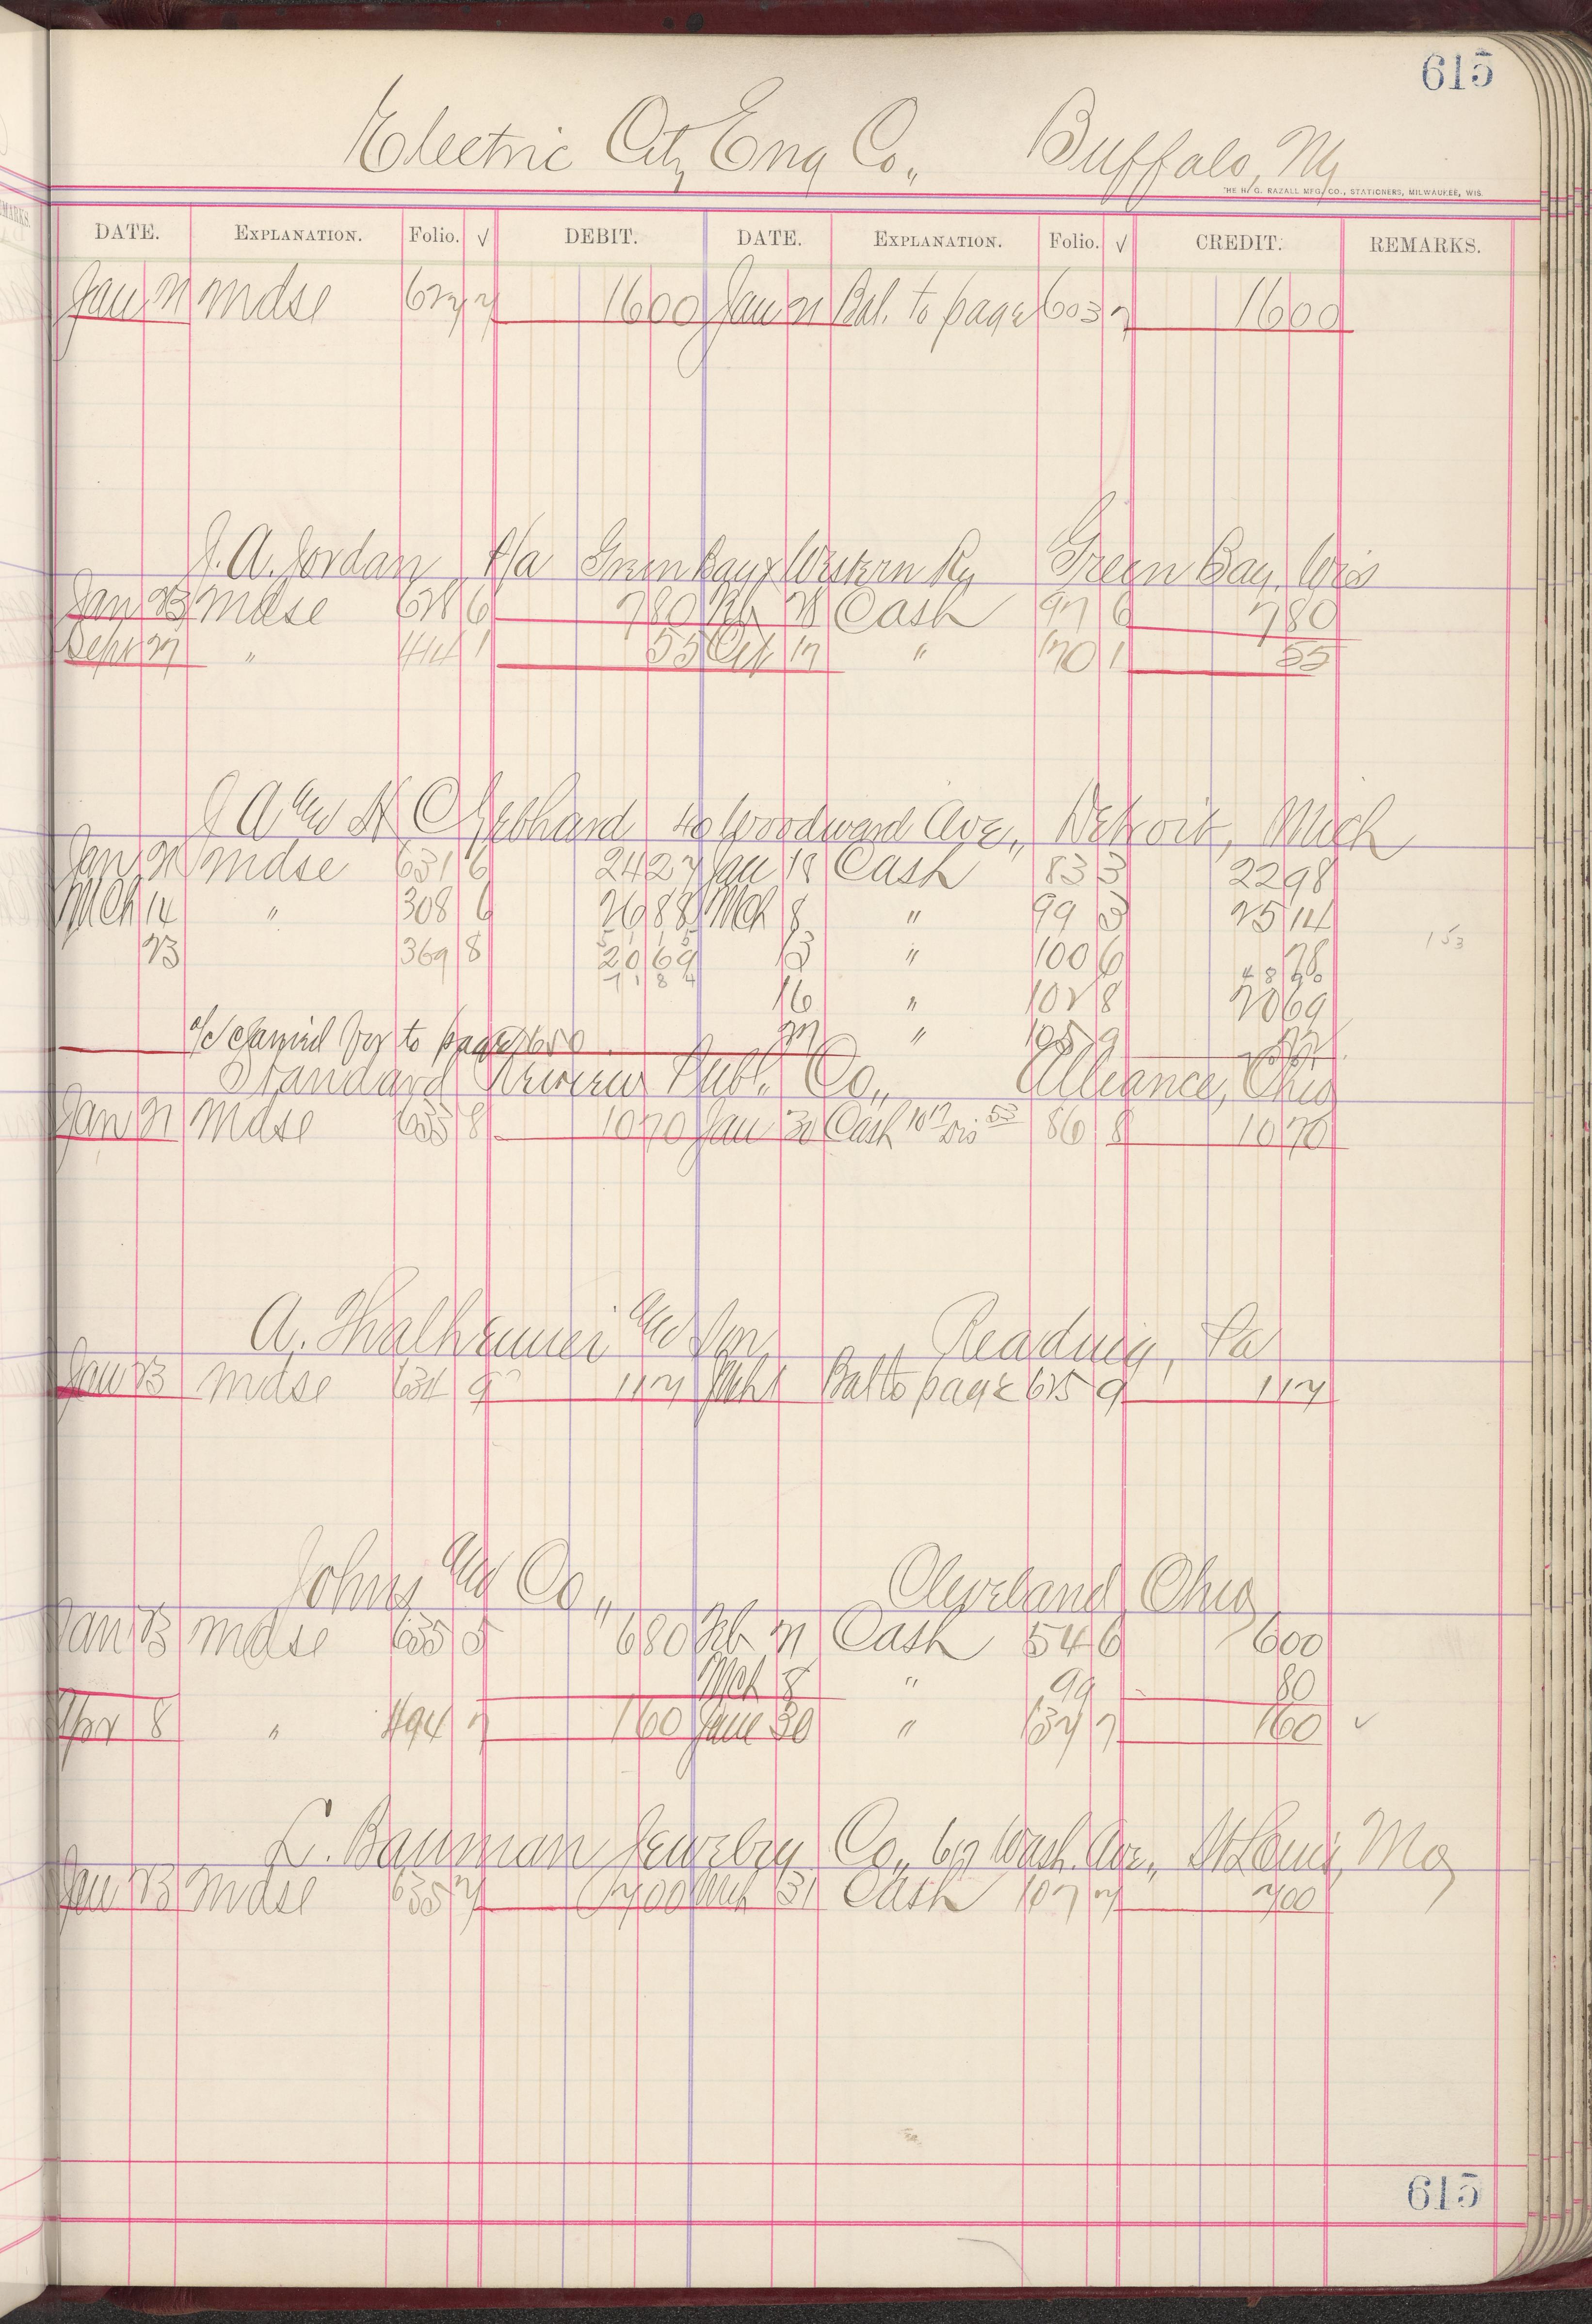 615
Electric City Eng Co., Buffalo, Ny
THE H. G. RAZALL MFG. CO., STATIONERS, MILWAUKEE, WIS.
DATE. EXPLANATION. Folio. √ DEBIT. DATE. EXPLANATION. Folio. √ CREDIT. REMARKS.
Jan 21 Mdse 627 7 1600 Jan 21 Bal. to page 603 7 1600
J. A. Jordan f/a Green Bay & Western Ry Green Bay, Wis
Jan 23 Mdse 628 6 780 Feb 28 Cash 97 6 780
Sept 27 " 444 1 55 Oct 17 " 170 1 55
J A and H C Gebhard 40 Woodward Ave., Detroit, Mich
Jan 21 Mdse 631 6 2427 Jan 18 Cash 83 3 2298
Mch 14 " 308 6 2688 Mch 8 " 99 3 2514
23 369 8 2069 13 " 100 6
16 " 102 8 2069
a/c Carried for to page 650 " 105 9
Standard Review Publ. Co., Alliance, Ohio
Jan 21 Mdse 635 8 1070 Jan 30 Cash 10 17 Dis 53 86 8 1070
A. Thalheimer and Son Reading, Pa
Jan 23 Mdse 634 9 117 Mch 1 Bal to page 625 9 117
Johns and Co., Cleveland, Ohio
Jan 23 Mdse 635 5 680 Feb 21 Cash 54 6 600
Mch 8 " 99 80
Apr 8 " 494 7 160 June 30 " 137 7 160 ✓
L. Bauman Jewelry Co., 617 Wash. Ave., St Louis, Mo
Jan 23 Mdse 635 7 700 Mch 31 Cash 107 7 700
615